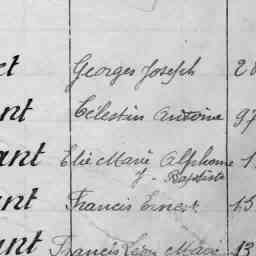 et Georges Joseph 28
nt Célestin Antoine 97
ant Elie Marie Alphonse 1
J-Baptiste
nt Francis Ernest 15
unt Francis Léon Marie 13